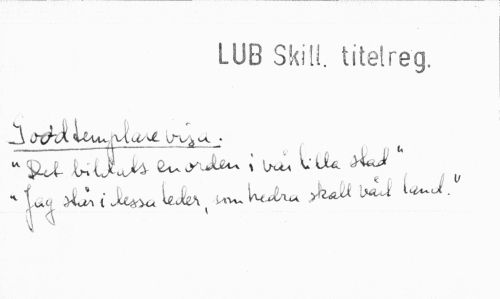 LUB Skill. titelreg.
Goodtemplarevisa.
"Det bildats en orden i vår lilla stad"
"Jag står i dessa leder, som hedra skall vårt land."